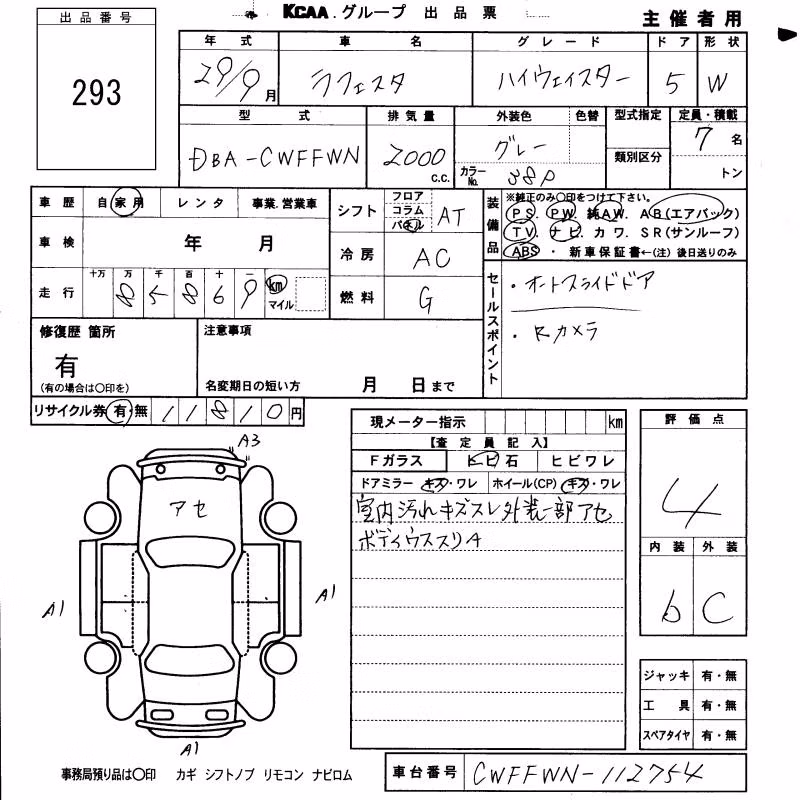 出品番号
293
KCAA.グループ 出品票
主催者用
年式 車名 グレード ドア 形状
29/9月 ラフェスタ ハイウェイスター 5 W
型式 排気量 外装色 色替 型式指定 定員・積載
DBA-CWFFWN 2000 C.C. グレー カラーNo. 38P 類別区分 7名
トン
車歴 自家用 レンタ 事業.営業車
車検 年 月
走行 十万 万 千 百 十 一
8 5 8 6 9 km マイル
シフト フロア コラム パネル AT
冷房 AC
燃料 G
装備品 ※純正のみ○印をつけて下さい。
PS. PW. 純AW. AB(エアバック)
TV. ナビ. カワ. SR(サンルーフ)
ABS ・ 新車保証書←(注)後日送りのみ
セールスポイント
・オートスライドドア
・Rカメラ
修復歴 箇所
有
(有の場合は○印を)
注意事項
名変期日の短い方 月 日まで
リサイクル券 有・無 1 1 8 1 0 円
現メーター指示 km
【査定員記入】
Fガラス ヒビ石 ヒビワレ
ドアミラー キズ・ワレ ホイール(CP) キズ・ワレ
室内汚れキズスレ外装一部アセ
ボディウススリA
評価点
4
内装 外装
b C
A3
アセ
A1
A1
A1
ジャッキ 有・無
工具 有・無
スペアタイヤ 有・無
事務局預り品は○印 カギ シフトノブ リモコン ナビロム
車台番号 CWFFWN-112754